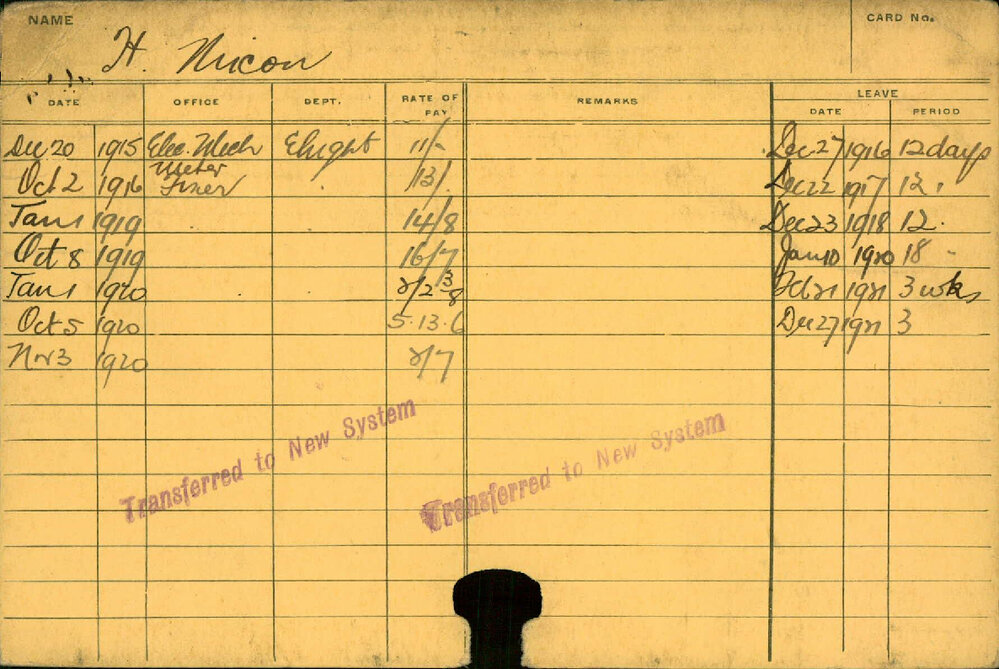 NAME
CARD No.
H. Nixon
DATE OFFICE DEPT. RATE OF PAY REMARKS LEAVE
DATE PERIOD
Dec 20 1915 Elec. Mech Elight 11/- Dec 27 1916 12 days
Oct 2 1916 Meter Fixer 12/. Dec 22 1917 12 "
Jan 1 1919 14/8 Dec 23 1918 12 .
Oct 8 1919 16/7 Jan 10 1920 18 -
Jan 1 1920 1921 3 wks
Oct 5 1920 5.13.6 Dec 27 1921 3
Nov 3 1920
Transferred to New System
Transferred to New System